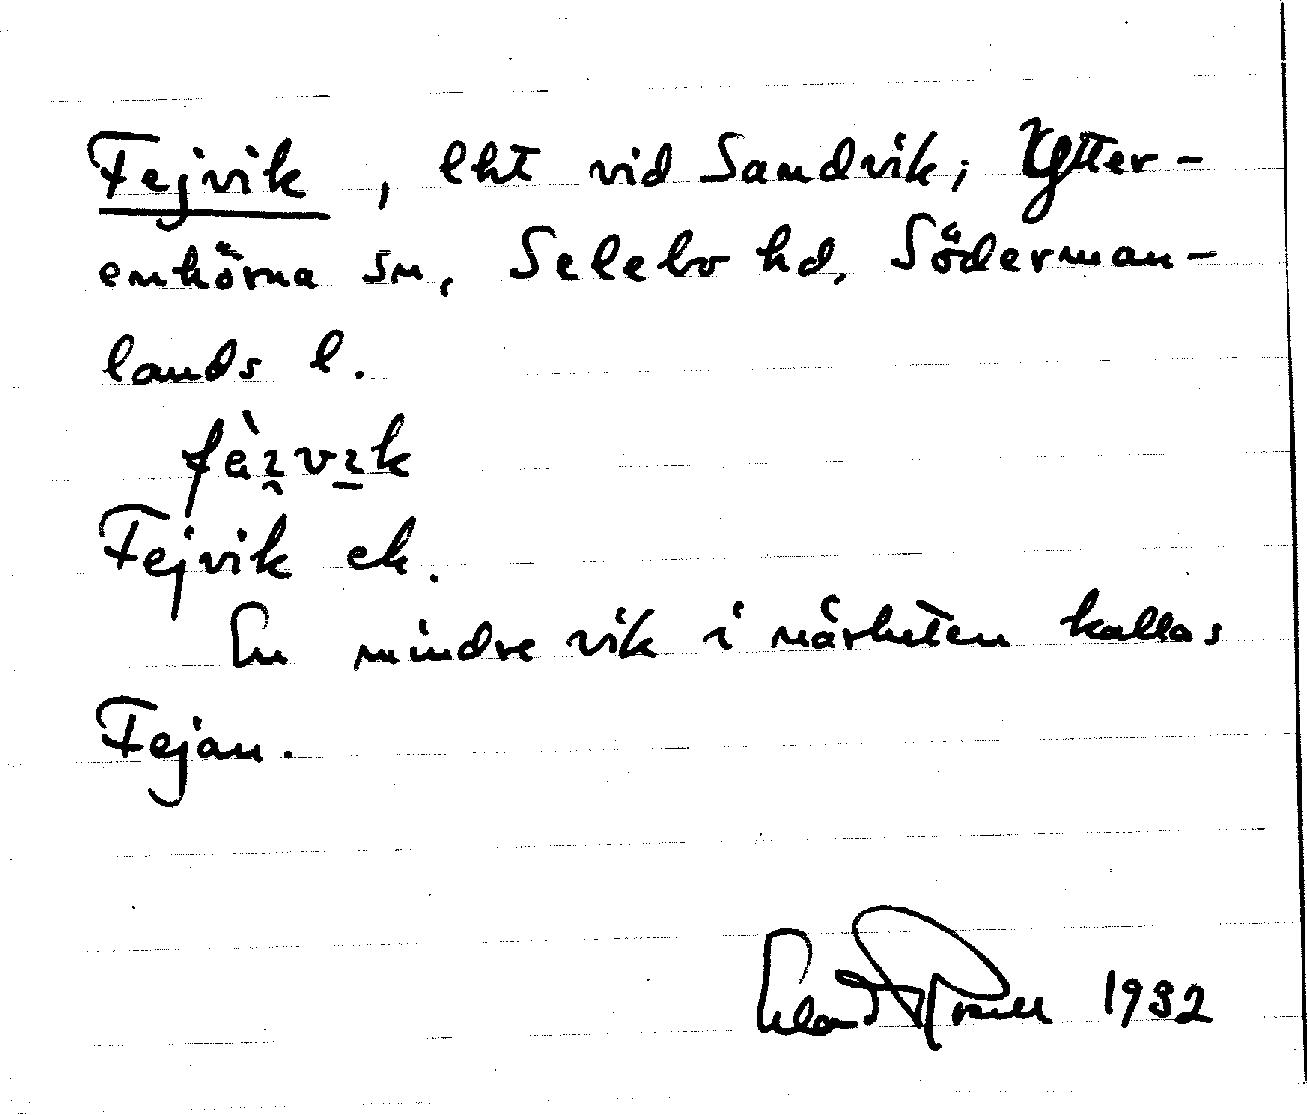 Fejvik, lht vid Sandvik; Ytter-
enhörna sn, Selebo hd, Söderman-
lands l.
Fejvik ek.
En mindre vik i närheten kallas
Fejan.
1932